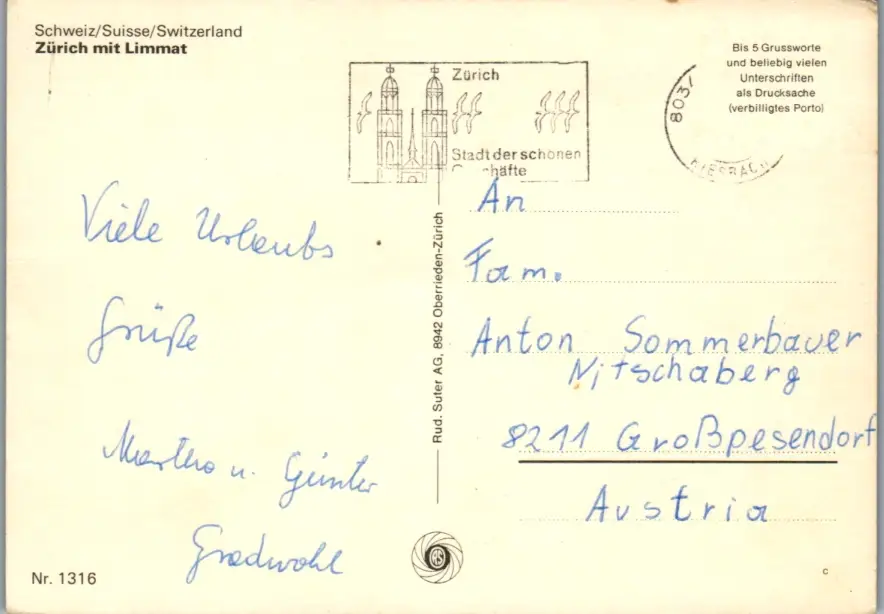 Schweiz/Suisse/Switzerland
Zürich mit Limmat
Zürich
Stadt der schönen
Bis 5 Grussworte
und beliebig vielen
Unterschriften
als Drucksache
(verbilligtes Porto)
803
Viele Urlaubs
Grüße
Martha u. Günter
Gradwohl
Rud. Suter AG, 8942 Oberrieden-Zürich
An
Fam.
Anton Sommerbauer
Nitschaberg
8211 Großpesendorf
Austria
RS
Nr. 1316
c